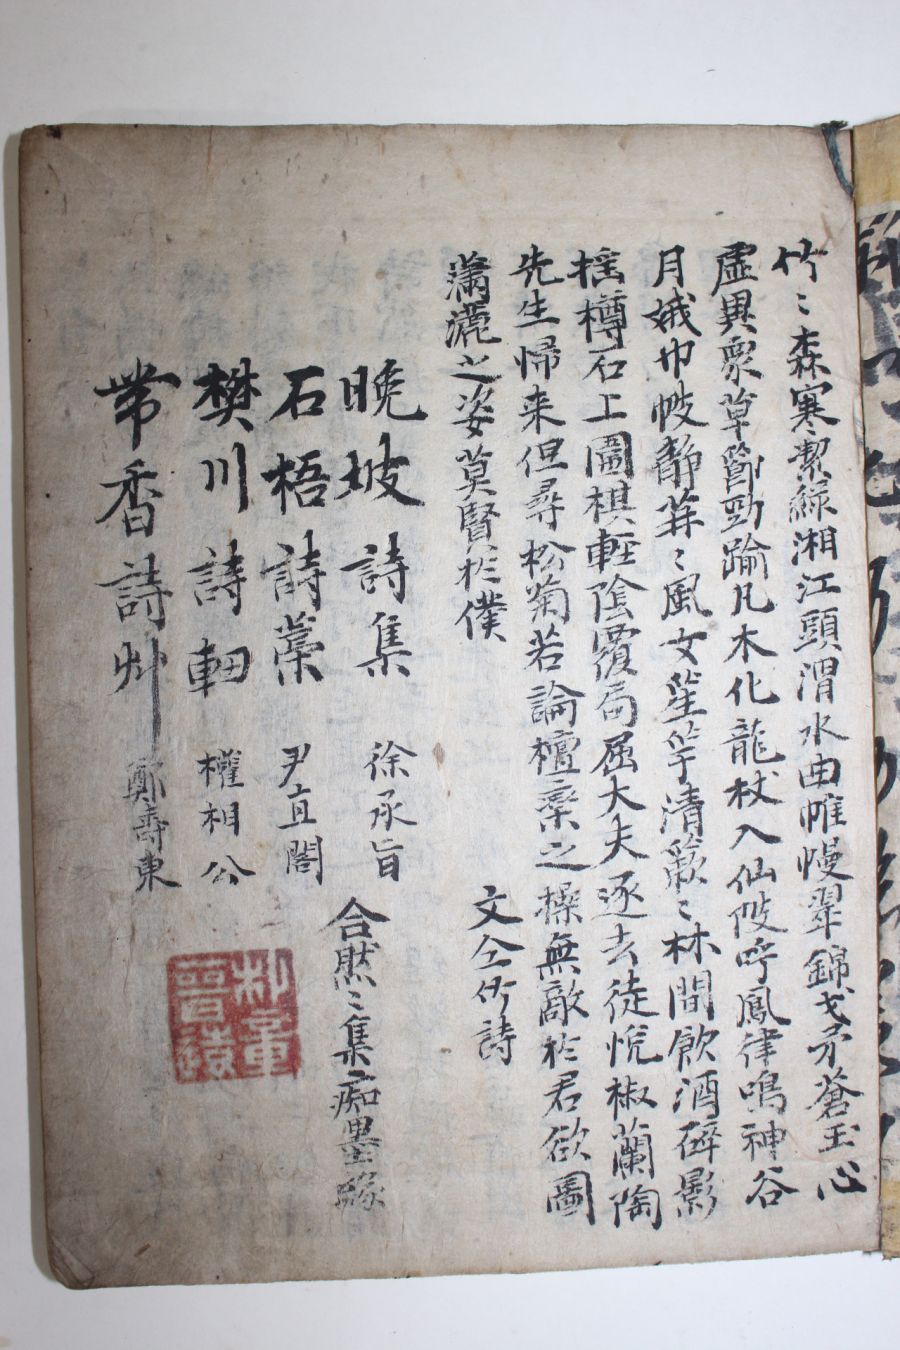 竹〻森寒潔綠湘江頭渭水曲帷幔翠錦戈矛蒼玉心
虛異衆草節勁踰凡木化龍杖入仙陂呼鳳律鳴神谷
月娥巾帔靜苒〻風女笙竽清簌〻林間飮酒碎影
搖樽石上圖棋輕陰覆局屈大夫逐去徒悅椒蘭陶
先生歸来但尋松菊若論檀欒之操無敵於君欲圖
瀟灑之姿莫賢於僕
文仝竹詩
晩坡詩集 徐承旨
石梧詩藁 尹直閣
樊川詩軸 權相公
帶香詩艸 鄭壽東
合然〻集痴墨緣
朴董
晉遠